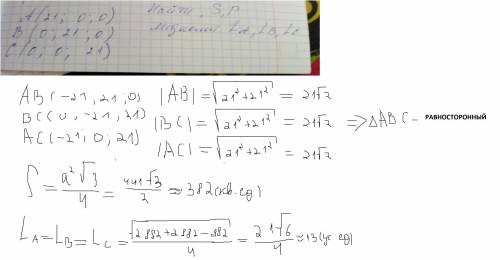 A(21; 0; 0) Найти S, P
B(0; 21; 0) медианы LA, LB, LC
C(0; 0; 21)
AB(-21; 21; 0) |AB| = √21²+21² = 21√2
BC(0; -21; 21) |BC| = √21²+21² = 21√2 ⇒ ΔABC - РАВНОСТОРОННИЙ
AC(-21; 0; 21) |AC| = √21²+21² = 21√2
S = a²√3/4 = 441√3/2 ≈ 382 (кв. ед)
LA = LB = LC = √2·882+2·882-882/4 = 21√6/4 ≈ 13 (ус ед)